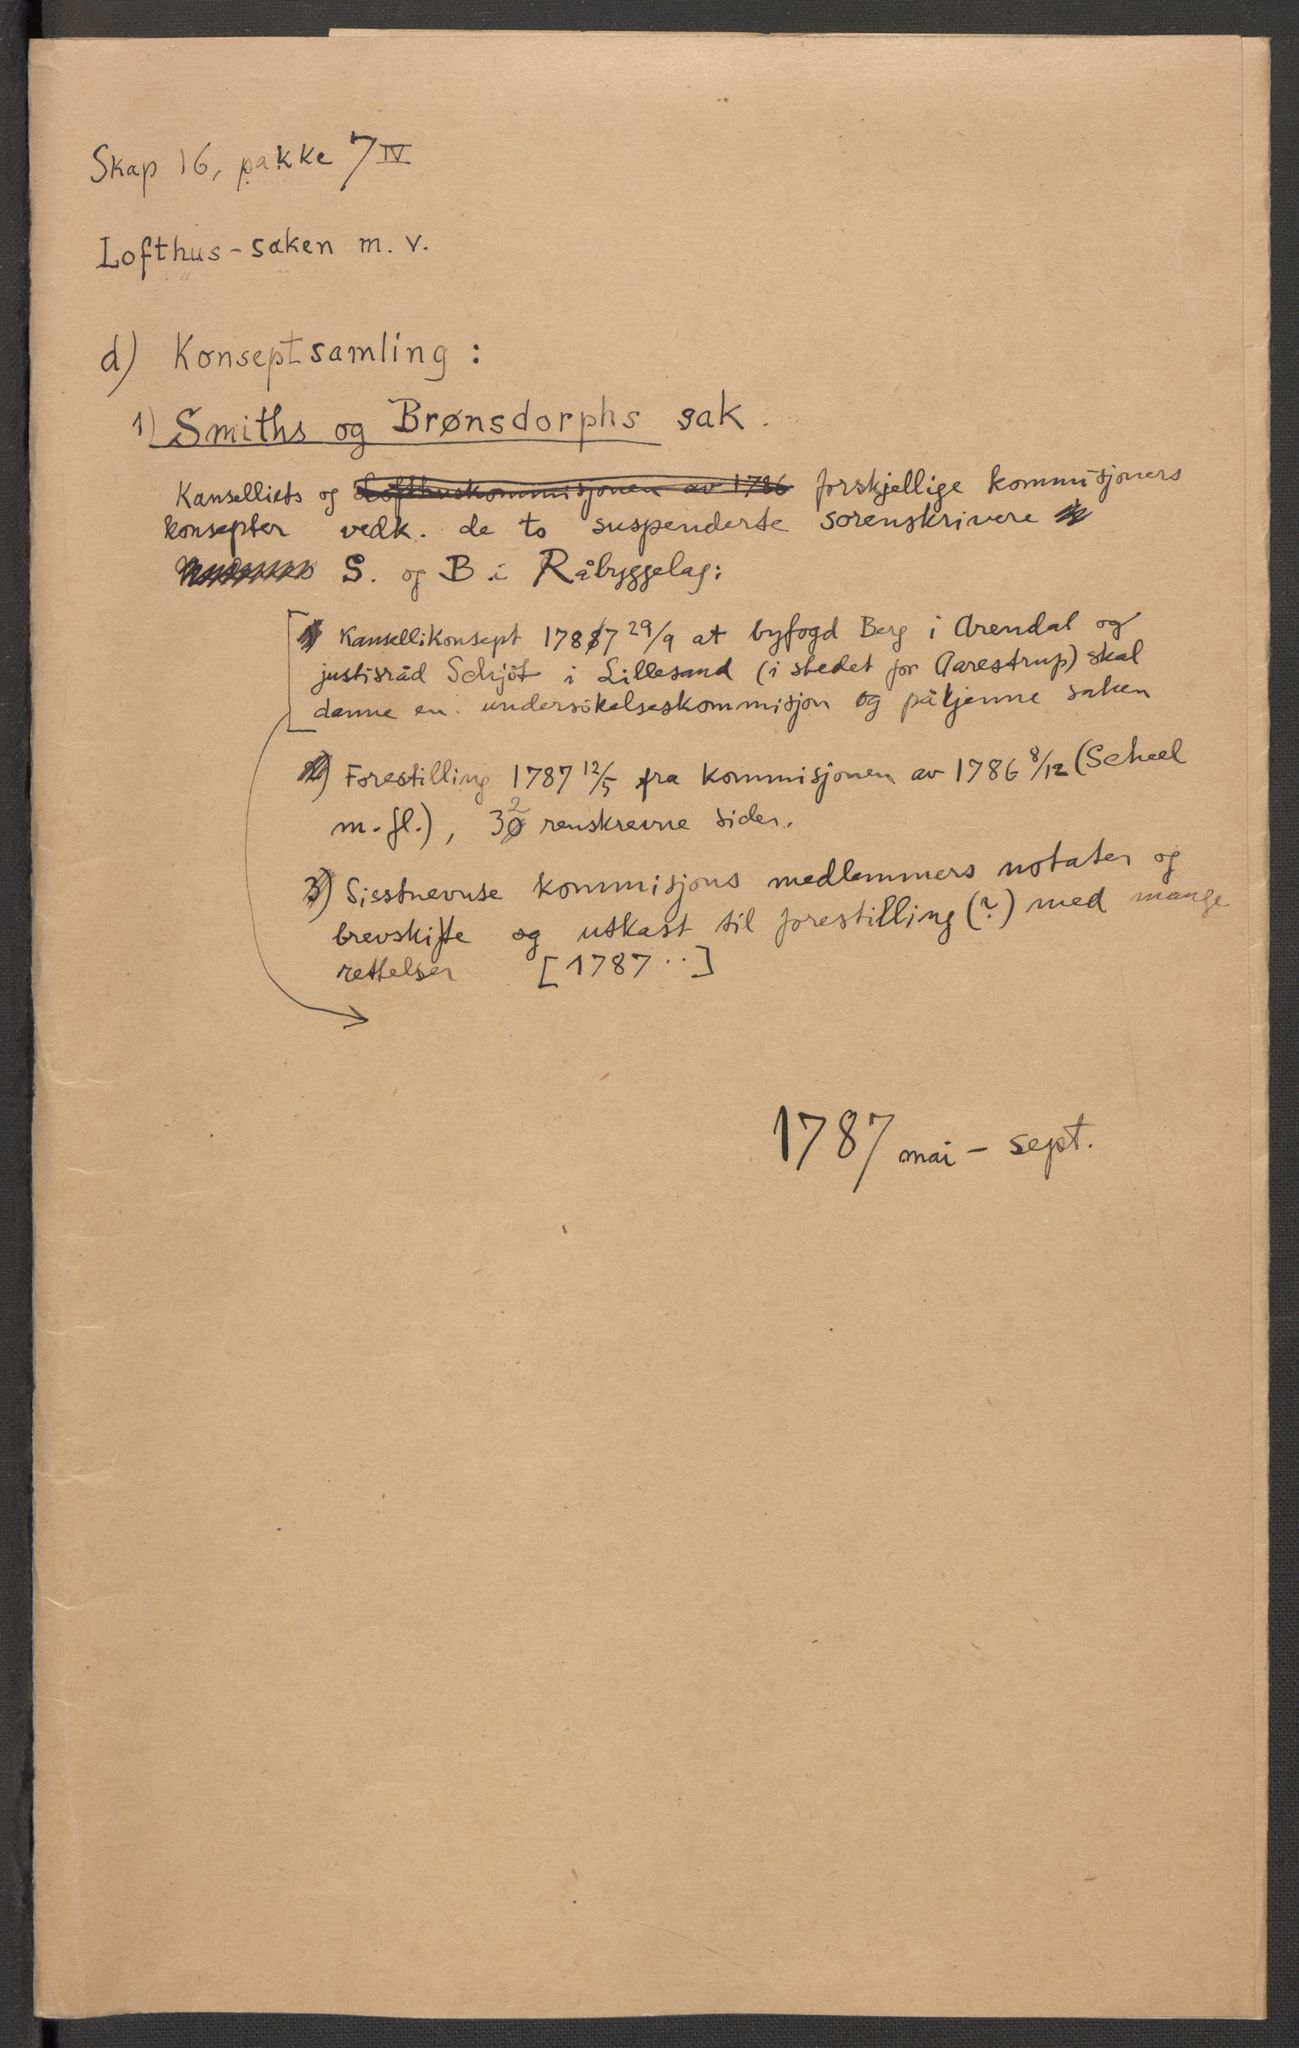 Skap 16, pakke 7 IV
Lofthus-saken m. v.
d) Konseptsamling :
1) Smiths og Brønsdorphs sak.
Kanselliets og Lofthuskommisjonen av 1786 forskjellige kommisjoners
konsepter vedk. de to suspenderte sorenskrivere
S. og B. i Råbyggelag:
Kansellikonsept 1787 29/9 at byfogd Berg i Arendal og
justisråd Schjöt i Lillesand (i stedet for Aarestrup) skal
danne en undersökelseskommisjon og påkjenne saken
2) Forestilling 1787 12/5 fra kommisjonen av 1786 8/12 (Scheel
m. fl.), 32 renskrevne sider.
3) Sisstnevnte kommisjons medlemmers notater og
brevskifte og utkast til forestilling (?) med mange
rettelser [1787 ..]
1787 mai - sept.